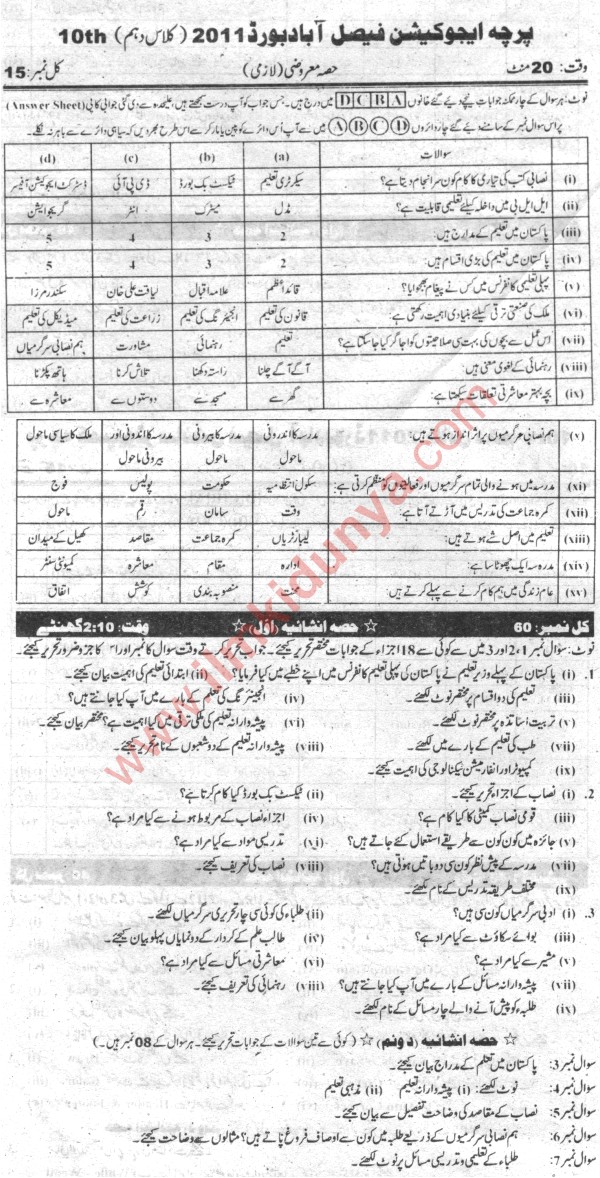 پرچہ ایجوکیشن فیصل آباد بورڈ 2011 (کلاس دہم) 10th
وقت: 20 منٹ حصہ معروضی (لازمی) کل نمبر: 15
نوٹ: ہر سوال کے چار ممکنہ جوابات نیچے دیئے گئے خانوں A B C D میں درج ہیں۔ جس جواب کو آپ درست سمجھتے ہیں، علیحدہ سے دی گئی جوابی کاپی (Answer Sheet)
پر اس سوال نمبر کے سامنے دیئے گئے چار دائروں A B C D میں سے آپ اُس دائرے کو پین یا مارکر سے اس طرح بھر دیں کہ سیاہی دائرے سے باہر نہ نکلے۔
سوالات (a) (b) (c) (d)
(i) نصابی کتب کی تیاری کا کام کون سرانجام دیتا ہے؟ سیکرٹری تعلیم ٹیکسٹ بک بورڈ ڈی پی آئی ڈسٹرکٹ ایجوکیشن آفیسر
(ii) ایل ایل بی میں داخلہ کیلئے تعلیمی قابلیت ہے؟ مڈل میٹرک انٹر گریجوایشن
(iii) پاکستان میں تعلیم کے مدارج ہیں: 2 3 4 5
(iv) پاکستان میں تعلیم کی بڑی اقسام ہیں: 2 3 4 5
(v) پہلی تعلیمی کانفرنس میں کس نے پیغام بھجوایا؟ قائداعظم علامہ اقبال لیاقت علی خان سکندر مرزا
(vi) ملک کی صنعتی ترقی کیلئے بنیادی اہمیت رکھتی ہے: قانون کی تعلیم انجینئرنگ کی تعلیم زراعت کی تعلیم میڈیکل کی تعلیم
(vii) اس عمل سے بچوں کی بہت سی صلاحیتوں کو اجاگر کیا جاسکتا ہے؟ تعلیم رہنمائی مشاورت ہم نصابی سرگرمیاں
(viii) رہنمائی کے لغوی معنی ہیں: آگے آگے چلنا راستہ دکھنا تلاش کرنا ہاتھ پکڑنا
(ix) بچہ بہتر معاشرتی تعلقات سیکھتا ہے: گھر سے مسجد سے دوستوں سے معاشرہ سے
(x) ہم نصابی سرگرمیوں پر اثر انداز ہوتے ہیں: مدرسہ کا اندرونی ماحول مدرسہ کا بیرونی ماحول مدرسہ کا اندونی اور بیرونی ماحول ملک کا سیاسی ماحول
(xi) مدرسہ میں ہونے والی تمام سرگرمیوں اور فعالیتوں کو منظم کرتی ہے: سکول انتظامیہ حکومت پولیس فوج
(xii) کمرہ جماعت کی تدریس میں آڑے آتا ہے: وقت سامان رقم ماحول
(xiii) تعلیم میں اصل شے ہوتے ہیں: لیبارٹریاں کمرہ جماعت مقاصد کھیل کے میدان
(xiv) مدرسہ ایک چھوٹا سا ہے: ادارہ مقام معاشرہ کمیونٹی سنٹر
(xv) عام زندگی میں ہم کام کرنے سے پہلے کرتے ہیں: محنت منصوبہ بندی کوشش اتفاق
کل نمبر: 60 حصہ انشائیہ (اول) وقت: 2:10 گھنٹے
نوٹ: سوال نمبر 1، 2 اور 3 میں سے کوئی سے 18 اجزاء کے جوابات مختصر تحریر کیجئے۔ جواب تحریر کرتے وقت سوال کا نمبر اور اس کا جزو ضرور تحریر کیجئے۔
1. (i) پاکستان کے پہلے وزیر تعلیم نے پاکستان کی پہلی تعلیم کانفرنس میں اپنے خطبے میں کیا فرمایا؟ (ii) ابتدائی تعلیم کی اہمیت بیان کیجئے۔
(iii) تعلیم کی دو اقسام پر مختصر نوٹ لکھئے۔ (iv) انجینئرنگ کی تعلیم کے بارے میں آپ کیا جانتے ہیں؟
(v) تربیت اساتذہ پر مختصر نوٹ لکھئے۔ (vi) پیشہ ورانہ تعلیم کی ملکی ترقی میں کیا اہمیت ہے؟ مختصر بیان کیجئے۔
(vii) طب کی تعلیم کے بارے میں لکھئے۔ (viii) پیشہ وارانہ تعلیم کے دو شعبوں کے نام تحریر کیجئے۔
(ix) کمپیوٹر اور انفارمیشن ٹیکنالوجی کی اہمیت کیجئے۔
2. (i) نصاب کے اجزاء تحریر کیجئے۔ (ii) ٹیکسٹ بک بورڈ کیا کام کرتا ہے؟
(iii) قومی نصاب کمیٹی کا کیا کام ہے؟ (iv) اجزاء نصاب کے مربوط ہونے سے کیا مراد ہے؟
(v) جائزہ میں کون کون سے طریقے استعمال کئے جاتے ہیں؟ (vi) تدریسی مواد سے کیا مراد ہے؟
(vii) مدرسہ کے پیش نظر کون سی دو باتیں ہوتی ہیں؟ (viii) نصاب کی تعریف کیجئے۔
(ix) مختلف طریقہ تدریس کے نام لکھئے۔
3. (i) ادبی سرگرمیاں کون سی ہیں؟ (ii) طلباء کی کوئی سی چار تحریری سرگرمیاں لکھئے۔
(iii) بوائے سکاؤٹ سے کیا مراد ہے؟ (iv) طالب علم کے کردار کے دو نمایاں پہلو بیان کیجئے۔
(v) مشیر سے کیا مراد ہے؟ (vi) معاشرتی مسائل سے کیا مراد ہے؟
(vii) پیشہ ورانہ مسائل کے بارے میں آپ کیا جانتے ہیں؟ (viii) رہنمائی کی تعریف کیجئے۔
(ix) طلبہ کو پیش آنے والے چار مسائل کے نام لکھئے۔
حصہ انشائیہ (دوئم) (کوئی سے تین سوالات کے جوابات تحریر کیجئے۔ ہر سوال کے 08 نمبر ہیں۔)
سوال نمبر 3: پاکستان میں تعلیم کے مدراج بیان کیجئے۔
سوال نمبر 4: نوٹ لکھئے: (i) پیشہ وارانہ تعلیم (ii) مذہبی تعلیم
سوال نمبر 5: نصاب کے مقاصد کی وضاحت تفصیل سے بیان کیجئے۔
سوال نمبر 6: ہم نصابی سرگرمیوں کے ذریعے طلبہ میں کون سے اوصاف فروغ پاتے ہیں؟ مثالوں سے وضاحت کیجئے۔
سوال نمبر 7: طلباء کے تعلیمی و تدریسی مسائل پر نوٹ لکھئے۔
www.ilmkidunya.com